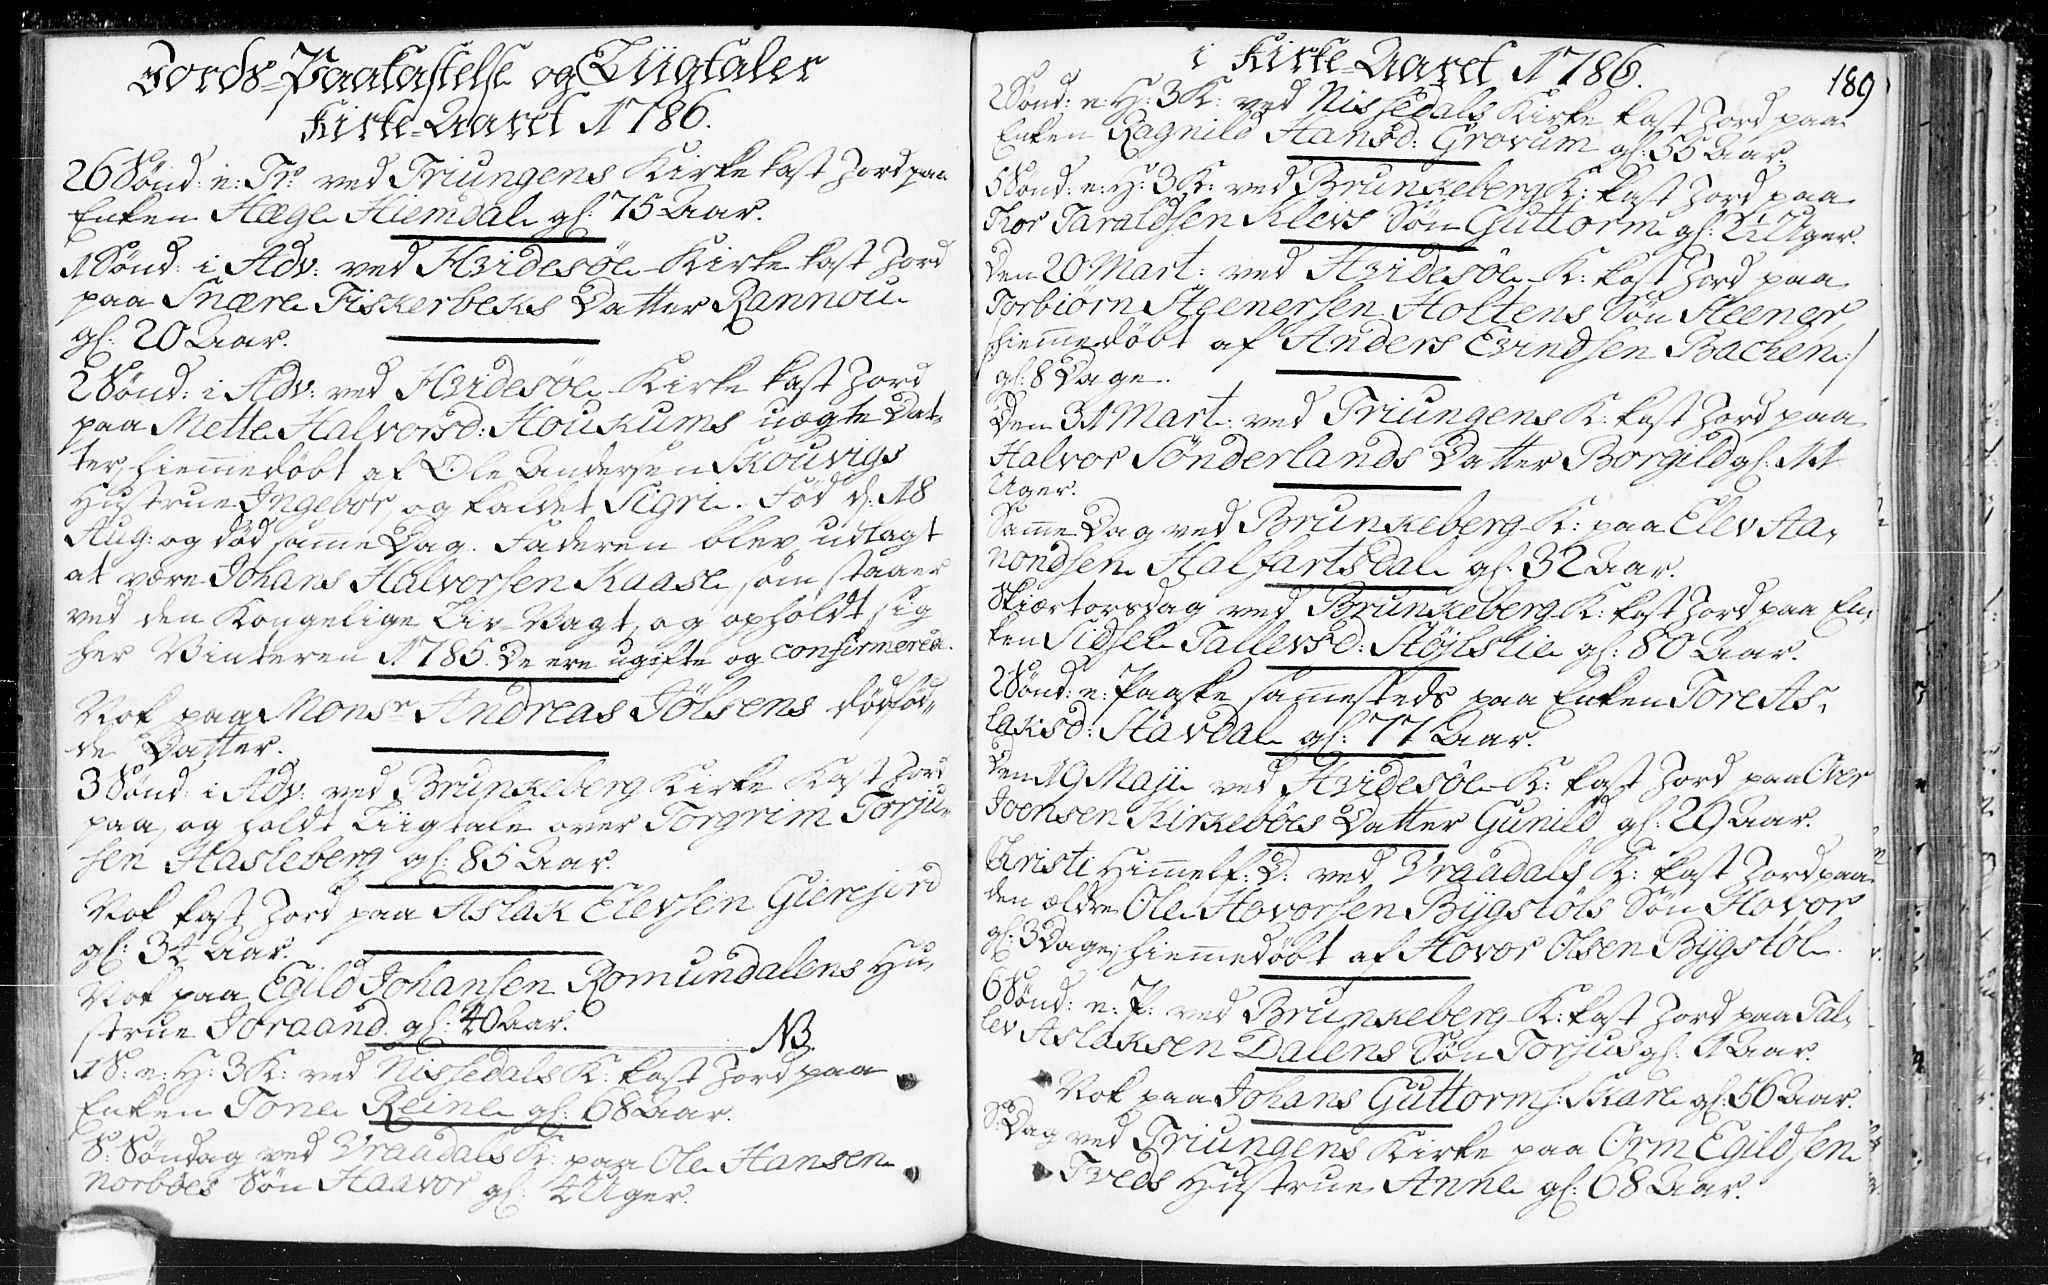 Jords-Paakastelse og Liigtaler
Kirke-Aaret 1786.
26 Sønd: e: Tr: ved Triungens Kirke kast Jord paa
Enken Hæge Hiemdal gl: 75 Aar.
1 Sønd: i Adv: ved Hvidesøe Kirke kast Jord
paa Snære Fiskerbeks Datter Rannou
gl: 20 Aar.
2 Sønd: i Adv: ved Hvidesøe Kirke kast Jord
paa Mette Halvorsd: Houkums uægte Dat-
ter, hiemmedøbt af Ole Andersen Skouvigs
Hustrue Ingebor, og kaldet Sigri. Fød d: 18
Aug: og død samme Dag. Faderen blev udlagt
at være Johans Halvorsen Kaase, som staaer
ved den Kongelige Liv-Vagt, og opholdt sig
her Vinteren 1785. De ere ugifte og confirmerede.
Nok paa Monsr Andreas Jølsens dødfød-
de Datter.
3 Sønd: i Adv: ved Brunkeberg Kirke kast Jord
paa, og holdt Liigtale over Torgrim Torju-
sen Hasleberg gl: 85 Aar.
Nok kast Jord paa Aslak Elevsen Gierejord
gl: 34 Aar.
Nok paa Egild Johansen Romundalens Hu-
strue Jøraand gl: 40 Aar. NB.
1 S: e: H: 3 K: ved Nissedals K: kast Jord paa
Enken Tone Reine gl: 68 Aar.
S: Søndag ved Vraadals K: paa Ole Hansen
Norbøes Søn Haavor gl: 4 Uger.
i Kirke-Aaret 1786.
189
2 Sønd: e: H: 3 K: ved Nissedals Kirke kast Jord paa
Enken Ragnild Hansd: Grovum gl: 55 Aar.
5 Sønd: e: H: 3 K: ved Brunkeberg K: kast Jord paa
Thor Taraldsen Klevs Søn Guttorm gl: Uger.
Den 20 Mart: ved Hvidesøe K: kast Jord paa
Torbiørn Steenersen Holtens Søn Steener,
/hiemmedøbt af Anders Evindsen Bachen:/
gl: 8 Dage.
Den 31 Mart: ved Triungens K: kast Jord paa
Halvor Sønderlands Datter Borgild gl: 11
Uger.
Samme Dag ved Brunkeberg K: paa Elev Aa-
nondsen Halfartsdal gl: 32 Aar.
Skiærtorsdag ved Brunkeberg K: kast Jord paa En-
ken Sidsel Tallevsd: Støjlslie gl: 80 Aar.
2 Sønd: e: Paaske sammesteds paa Enken Tore As-
laksd: Stavdal gl: 77 Aar.
Den 19 Maji ved Hvidesøe K: kast Jord paa Over
Joensen Kirkebøes Datter Gunild gl: 29 Aar.
Christi Himmelf: D: ved Vraadals K: kast Jord paa
den ældre Ole Hovorsen Bygstøls Søn Hovor
gl: 3 Dage, hiemmedøbt af Hovor Olsen Bygstøl.
6 Sønd: e: P: ved Brunkeberg K: kast Jord paa Tal-
lev Aslaksen Dalens Søn Torjus gl: 1 Aar.
Nok paa Johans Guttorms: Skare gl: 56 Aar.
S: Dag ved Triungens Kirke paa Orm Egildsen
Tveds Hustrue Anne gl: 68 Aar.